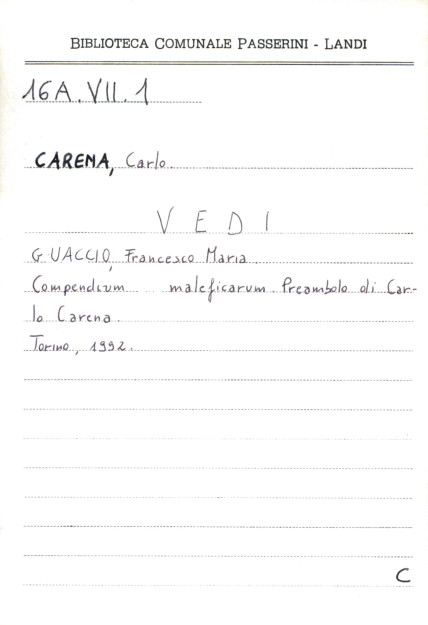 BIBLIOTECA COMUNALE PASSERINI - LANDI
16A.VII.1
CARENA, Carlo.
VEDI
GUACCIO, Francesco Maria
Compendium maleficarum. Preambolo di Car-
lo Carena.
Torino, 1992.
C